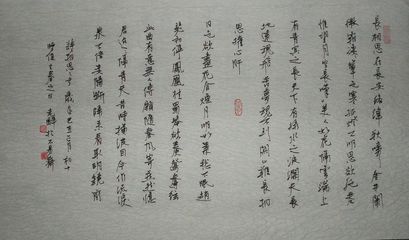 長相思在長安絡緯秋啼金井闌
微霜淒淒簟色寒孤燈不明思欲絕卷
帷望月空長嘆美人如花隔雲端上
有青冥之長天下有淥水之波瀾天長
地遠魂飛苦夢魂不到關山難長相
思摧心肝
日色欲盡花含煙月明如素愁不眠趙
瑟初停鳳凰柱蜀琴欲奏鴛鴦弦
此曲有意無人傳願隨春風寄燕然憶
君迢迢隔青天昔時橫波目今作流淚
泉不信妾腸斷歸來看取明鏡前